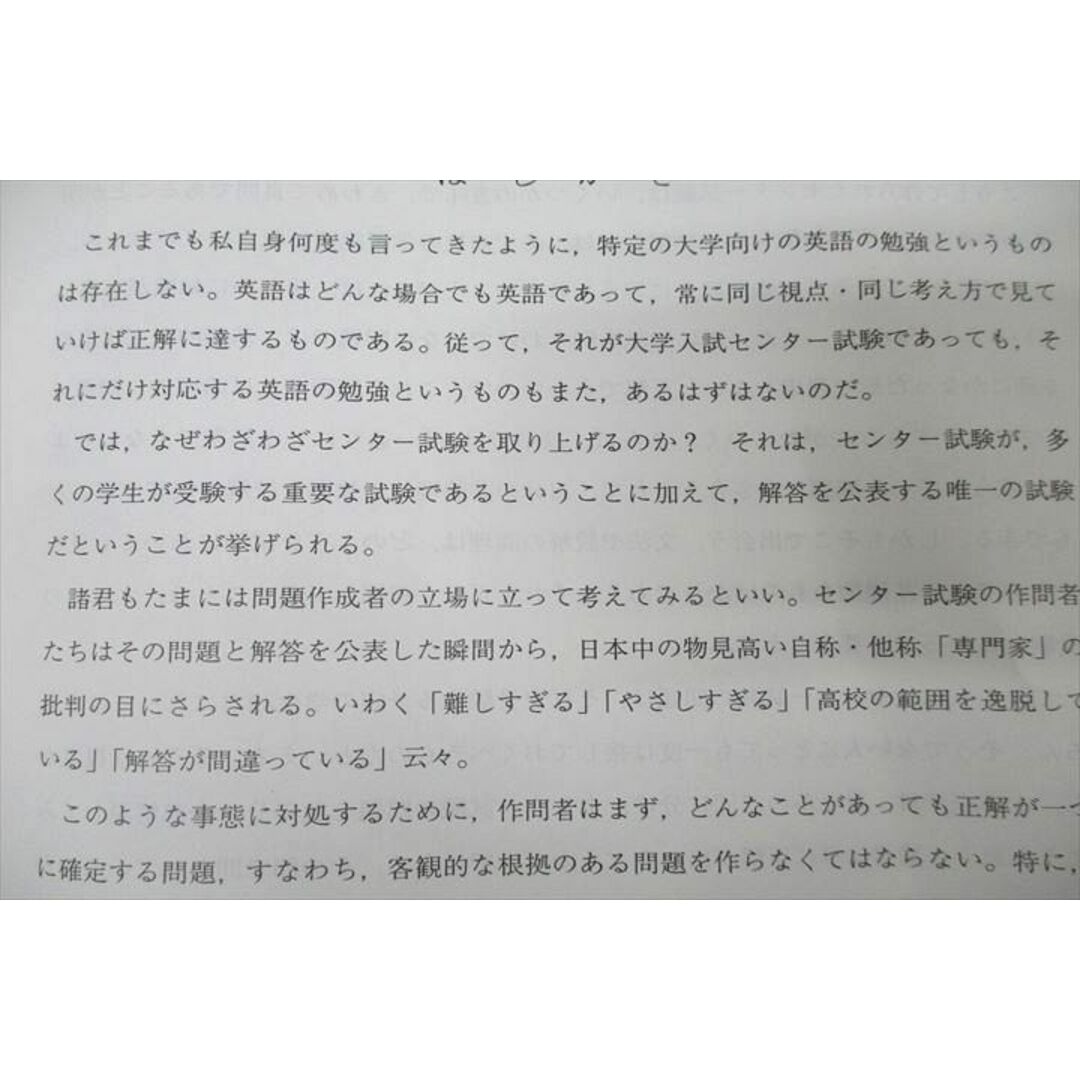 はしがき
これまでも私自身何度も言ってきたように，特定の大学向けの英語の勉強というもの
は存在しない。英語はどんな場合でも英語であって，常に同じ視点・同じ考え方で見て
いけば正解に達するものである。従って，それが大学入試センター試験であっても，そ
れにだけ対応する英語の勉強というものもまた，あるはずはないのだ。
では，なぜわざわざセンター試験を取り上げるのか？　それは，センター試験が，多
くの学生が受験する重要な試験であるということに加えて，解答を公表する唯一の試験
だということが挙げられる。
諸君もたまには問題作成者の立場に立って考えてみるといい。センター試験の作問者
たちはその問題と解答を公表した瞬間から，日本中の物見高い自称・他称「専門家」の
批判の目にさらされる。いわく「難しすぎる」「やさしすぎる」「高校の範囲を逸脱して
いる」「解答が間違っている」云々。
このような事態に対処するために，作問者はまず，どんなことがあっても正解が一つ
に確定する問題，すなわち，客観的な根拠のある問題を作らなくてはならない。特に，